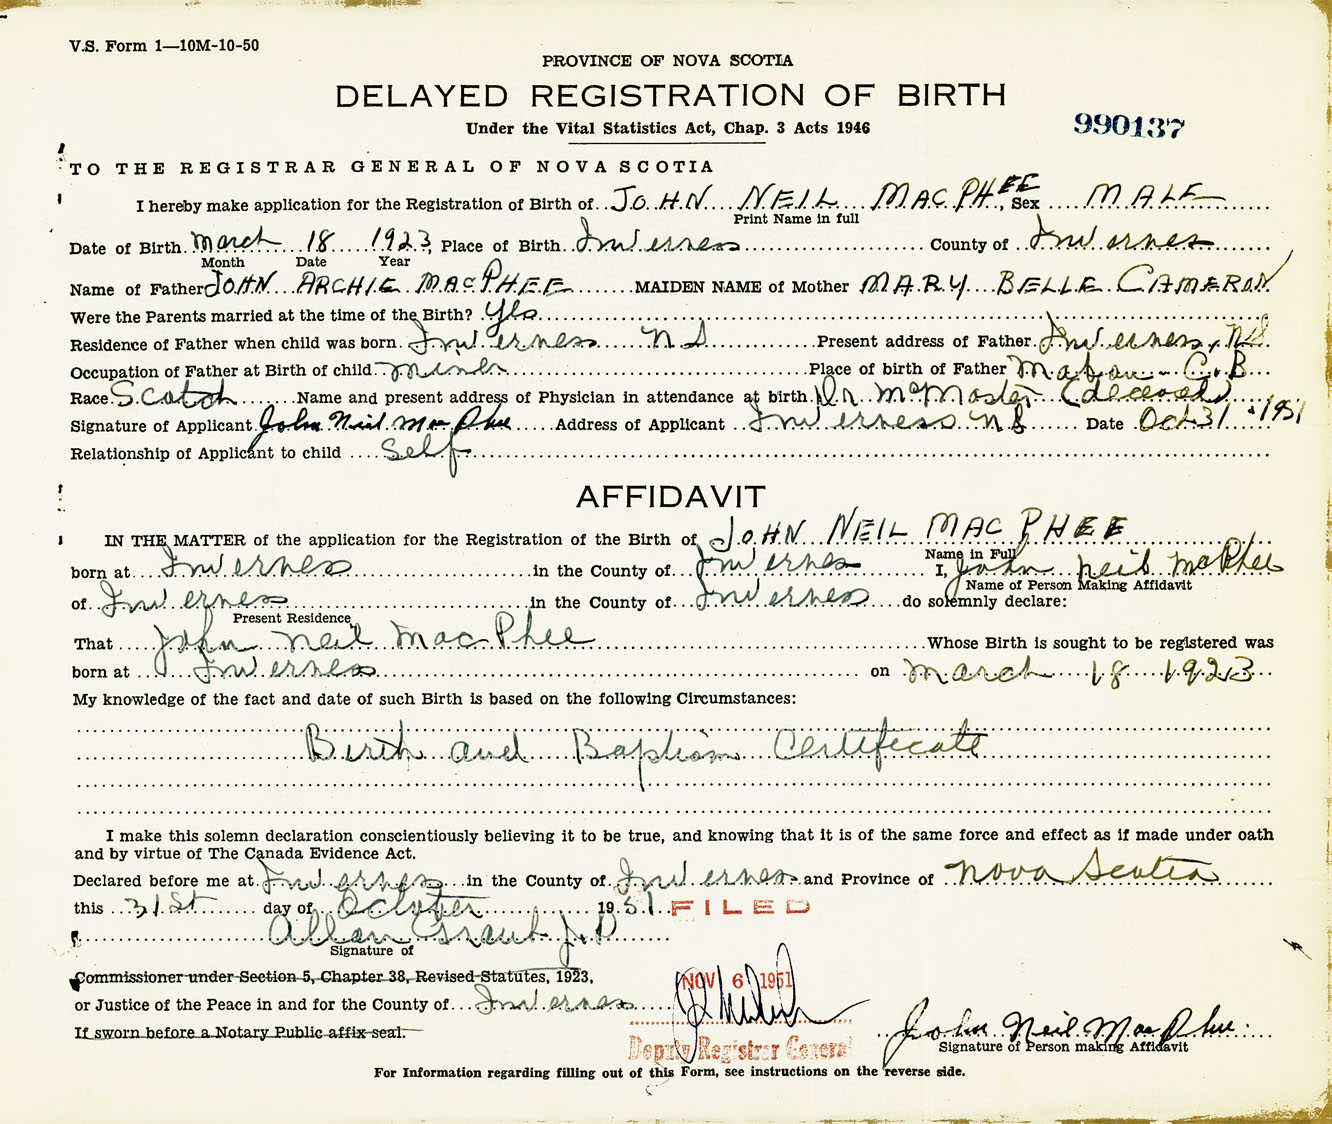 V.S. Form 1—10M-10-50
PROVINCE OF NOVA SCOTIA
DELAYED REGISTRATION OF BIRTH
Under the Vital Statistics Act, Chap. 3 Acts 1946
990137
TO THE REGISTRAR GENERAL OF NOVA SCOTIA
I hereby make application for the Registration of Birth of JOHN NEIL MACPHEE, Sex MALE
Print Name in full
Date of Birth March 18 1923, Place of Birth Inverness County of Inverness
Month Date Year
Name of Father JOHN ARCHIE MACPHEE MAIDEN NAME of Mother MARY BELLE CAMERON
Were the Parents married at the time of the Birth? Yes
Residence of Father when child was born Inverness N S Present address of Father Inverness, N S
Occupation of Father at Birth of child miner Place of birth of Father Mabou C.B
Race Scotch Name and present address of Physician in attendance at birth Dr McMaster (deceased)
Signature of Applicant John Neil MacPhee Address of Applicant Inverness N S Date Oct 31 - 1951
Relationship of Applicant to child Self
AFFIDAVIT
IN THE MATTER of the application for the Registration of the Birth of JOHN NEIL MACPHEE
Name in Full
born at Inverness in the County of Inverness I, John Neil McPhee
Name of Person Making Affidavit
of Inverness in the County of Inverness do solemnly declare:
Present Residence
That John Neil MacPhee Whose Birth is sought to be registered was
born at Inverness on March 18 1923
My knowledge of the fact and date of such Birth is based on the following Circumstances:
Birth and Baptism Certificate
I make this solemn declaration conscientiously believing it to be true, and knowing that it is of the same force and effect as if made under oath
and by virtue of The Canada Evidence Act.
Declared before me at Inverness in the County of Inverness and Province of Nova Scotia
this 31st day of October 1951 FILED
Allan Grant J.P
Signature of
Commissioner under Section 5, Chapter 38, Revised Statutes, 1923,
NOV 6 1951
or Justice of the Peace in and for the County of Inverness
If sworn before a Notary Public affix seal.
John Neil MacPhee
Deputy Registrar General
Signature of Person making Affidavit
For Information regarding filling out of this Form, see instructions on the reverse side.